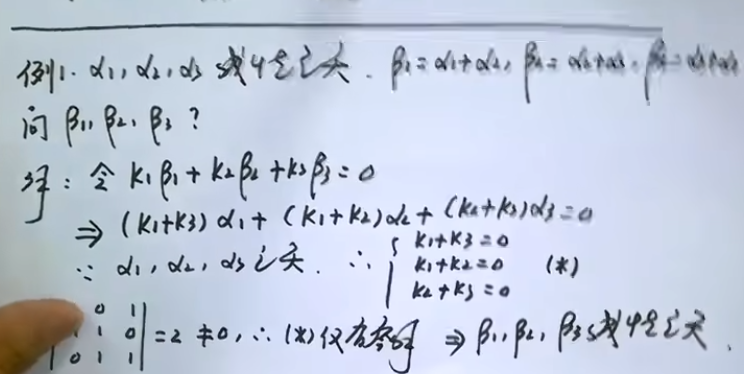 例1. α1, α2, α3 线性无关. β1 = α1+α2, β2 = α2+α3, β3 = α3+α1
问 β1, β2, β3 ?
解: 令 k1β1 + k2β2 + k3β3 = 0
⇒ (k1+k3)α1 + (k1+k2)α2 + (k2+k3)α3 = 0
∵ α1, α2, α3 无关. ∴ { k1+k3=0
k1+k2=0 (*)
k2+k3=0
0 1
1 0 | =2≠0, ∴ (*)仅有零解 ⇒ β1, β2, β3线性无关.
0 1 1